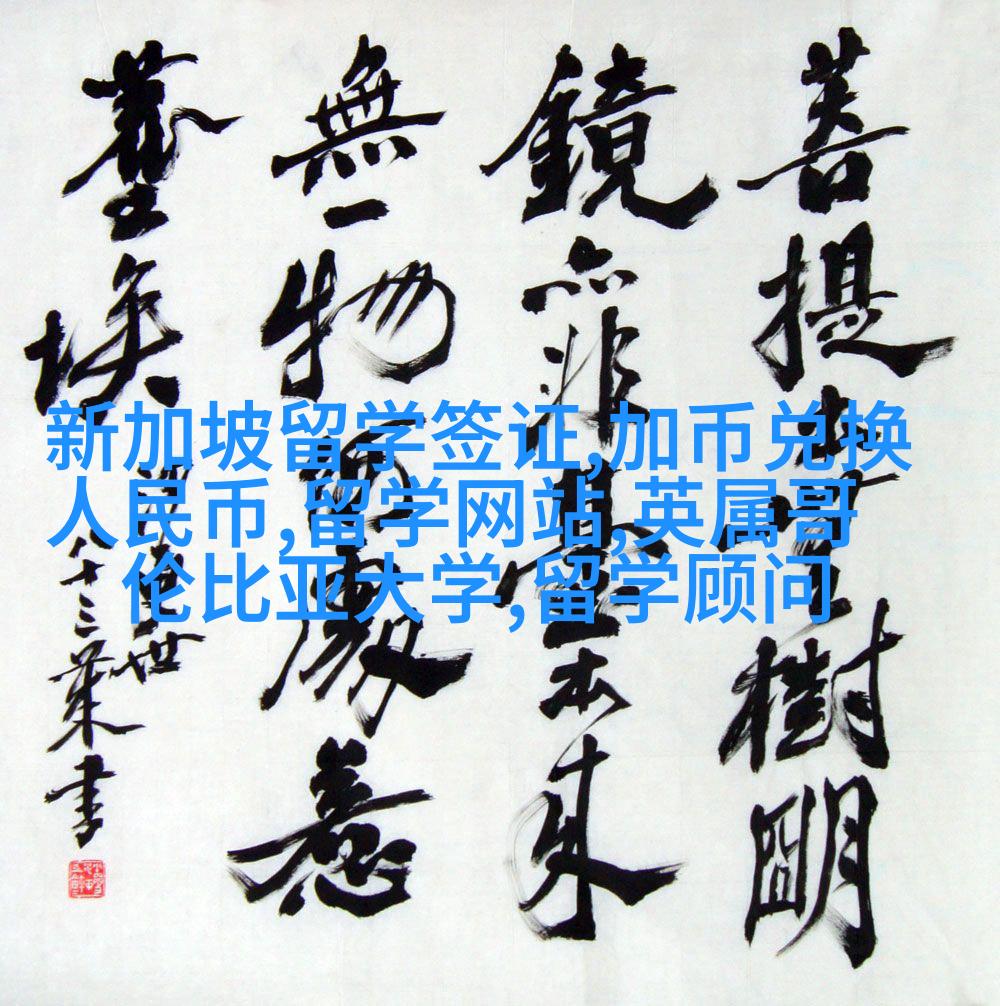 菩提樹明
鏡亦非臺本来
無一物何處惹
塵埃
八十三書
新加坡留学签证,加币兑换
人民币,留学网站,英属哥
伦比亚大学,留学顾问